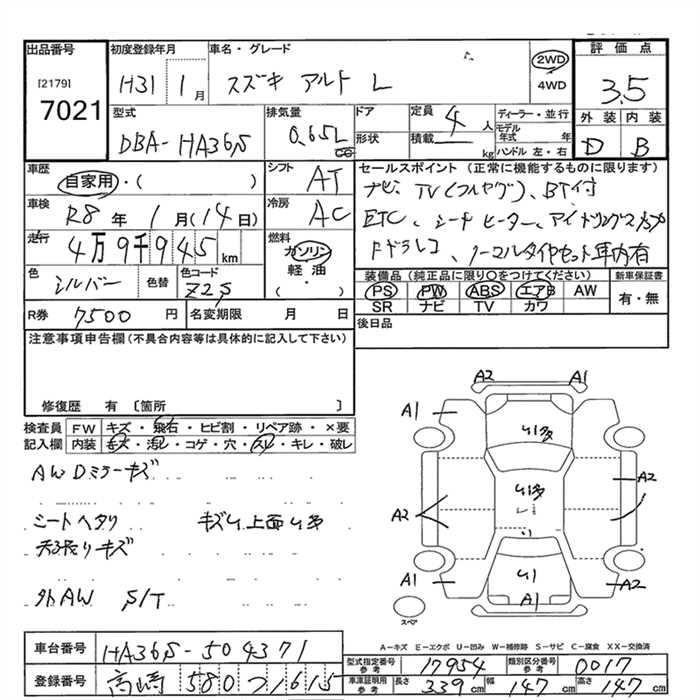 出品番号 初度登録年月 車名・グレード 評価点
[2179] H31 1月 スズキ アルト L 2WD 3.5
7021 4WD
型式 排気量 ドア 定員 4人 ディーラー・並行 外装 内装
DBA-HA36S 0.65L 形状 積載 kg モデル年式 年 D B
cc ハンドル 左・右
車歴 シフト セールスポイント (正常に機能するものに限ります)
自家用・( ) AT ナビ、TV(フルセグ)、BT付
車検 R8年 1月(14日) 冷房 AC ETC、シートヒーター、アイドリングストップ
走行 4万9千945km 燃料 ガソリン ドラレコ、ノーマルタイヤセット車内有
色 シルバー 色替 色コード Z2S 軽油 ( ) 装備品 (純正品に限り○をつけてください) 新車保証書
PS PW ABS エアB AW 有・無
R券 7500円 名変期限 月 日 SR ナビ TV カワ
注意事項申告欄(不具合内容等は具体的に記入して下さい) 後日品
修復歴 有 [箇所 ]
検査員 FW キズ・飛石・ヒビ割・リペア跡・×要
記入欄 内装 キズ・汚レ・コゲ・穴・スレ・キレ・破レ
AW Dミラーキズ
シートヘタリ キズ 上面
天張りキズ
外AW S/T
A2 A1
A1
A2
A2
A1 A2
A1
スペア
A-キズ E-エクボ U-凹み W-補修跡 S-サビ C-腐食 XX-交換済
車台番号 HA36S-504371 型式指定番号 参考 17954 類別区分番号 参考 0017
登録番号 高崎 580 21615 車庫証明用 参考 長さ 339cm 幅 147cm 高さ 147cm